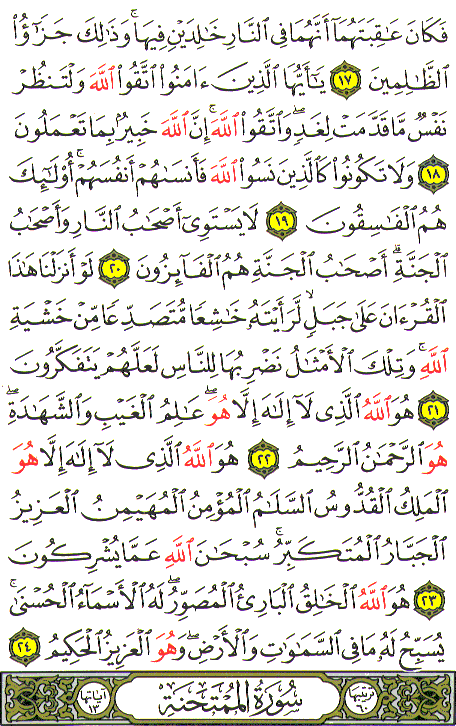 فَكَانَ عَٰقِبَتَهُمَآ أَنَّهُمَا فِى ٱلنَّارِ خَٰلِدَيْنِ فِيهَا ۚ وَذَٰلِكَ جَزَٰٓؤُا۟
ٱلظَّٰلِمِينَ ١٧ يَٰٓأَيُّهَا ٱلَّذِينَ ءَامَنُوا۟ ٱتَّقُوا۟ ٱللَّهَ وَلْتَنظُرْ
نَفْسٌ مَّا قَدَّمَتْ لِغَدٍ ۖ وَٱتَّقُوا۟ ٱللَّهَ ۚ إِنَّ ٱللَّهَ خَبِيرٌۢ بِمَا تَعْمَلُونَ
١٨ وَلَا تَكُونُوا۟ كَٱلَّذِينَ نَسُوا۟ ٱللَّهَ فَأَنسَىٰهُمْ أَنفُسَهُمْ ۚ أُو۟لَٰٓئِكَ
هُمُ ٱلْفَٰسِقُونَ ١٩ لَا يَسْتَوِىٓ أَصْحَٰبُ ٱلنَّارِ وَأَصْحَٰبُ
ٱلْجَنَّةِ ۚ أَصْحَٰبُ ٱلْجَنَّةِ هُمُ ٱلْفَآئِزُونَ ٢٠ لَوْ أَنزَلْنَا هَٰذَا
ٱلْقُرْءَانَ عَلَىٰ جَبَلٍ لَّرَأَيْتَهُۥ خَٰشِعًا مُّتَصَدِّعًا مِّنْ خَشْيَةِ
ٱللَّهِ ۚ وَتِلْكَ ٱلْأَمْثَٰلُ نَضْرِبُهَا لِلنَّاسِ لَعَلَّهُمْ يَتَفَكَّرُونَ
٢١ هُوَ ٱللَّهُ ٱلَّذِى لَآ إِلَٰهَ إِلَّا هُوَ ۖ عَٰلِمُ ٱلْغَيْبِ وَٱلشَّهَٰدَةِ ۖ
هُوَ ٱلرَّحْمَٰنُ ٱلرَّحِيمُ ٢٢ هُوَ ٱللَّهُ ٱلَّذِى لَآ إِلَٰهَ إِلَّا هُوَ
ٱلْمَلِكُ ٱلْقُدُّوسُ ٱلسَّلَٰمُ ٱلْمُؤْمِنُ ٱلْمُهَيْمِنُ ٱلْعَزِيزُ
ٱلْجَبَّارُ ٱلْمُتَكَبِّرُ ۚ سُبْحَٰنَ ٱللَّهِ عَمَّا يُشْرِكُونَ
٢٣ هُوَ ٱللَّهُ ٱلْخَٰلِقُ ٱلْبَارِئُ ٱلْمُصَوِّرُ ۖ لَهُ ٱلْأَسْمَآءُ ٱلْحُسْنَىٰ ۚ
يُسَبِّحُ لَهُۥ مَا فِى ٱلسَّمَٰوَٰتِ وَٱلْأَرْضِ ۖ وَهُوَ ٱلْعَزِيزُ ٱلْحَكِيمُ ٢٤
ترتيبها ٦٠ سُورَةُ الْمُمْتَحنَةِ آياتها ١٣